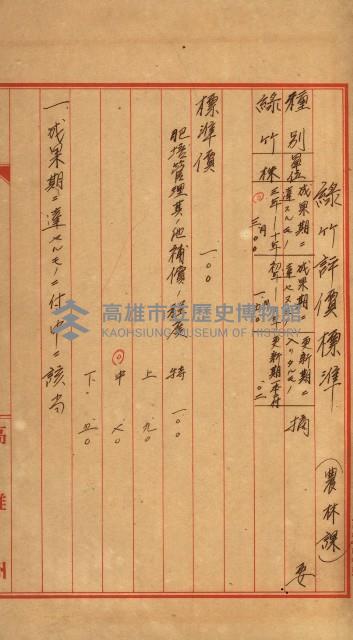 綠竹評價標準 (農林課)
種別 單位 成果期ニ達スルモノ 成果期ニ達セスモノ 更新期ニ入リタルモノ 摘要
綠竹 株 三年—十年 初年—二年 更新期一本付
標準價 一.〇〇
肥培管理其ノ他補償ノ程度 特 一.〇〇
上 .九〇
中 .七〇
下 .五〇
一、成果期ニ達セルモノニ付中ニ該当
高雄州
高雄市立歷史博物館
KAOHSIUNG MUSEUM OF HISTORY